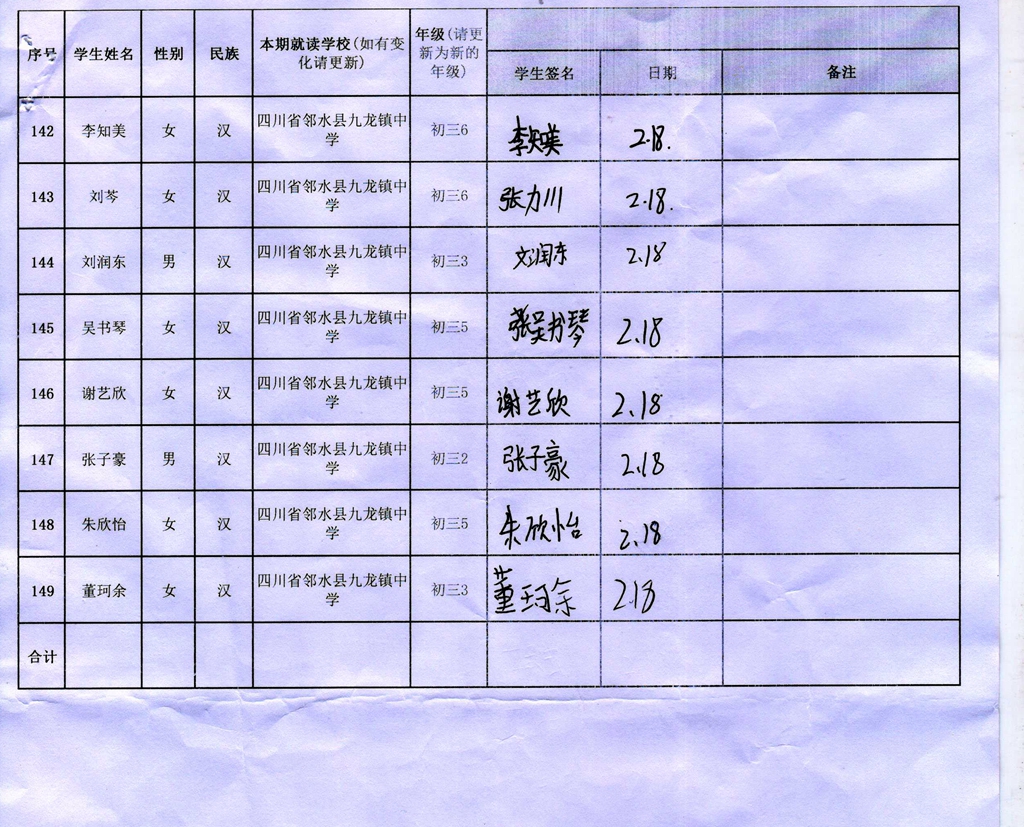 序号 学生姓名 性别 民族 本期就读学校(如有变化请更新) 年级(请更新为新的年级) 学生签名 日期 备注
142 李知美 女 汉 四川省邻水县九龙镇中学 初三6 李知美 2.18.
143 刘芩 女 汉 四川省邻水县九龙镇中学 初三6 张力川 2.18.
144 刘润东 男 汉 四川省邻水县九龙镇中学 初三3 刘润东 2.18
145 吴书琴 女 汉 四川省邻水县九龙镇中学 初三5 吴书琴 2.18
146 谢艺欣 女 汉 四川省邻水县九龙镇中学 初三5 谢艺欣 2.18
147 张子豪 男 汉 四川省邻水县九龙镇中学 初三2 张子豪 2.18
148 朱欣怡 女 汉 四川省邻水县九龙镇中学 初三5 朱欣怡 2.18
149 董珂余 女 汉 四川省邻水县九龙镇中学 初三3 董珂余 2.18
合计